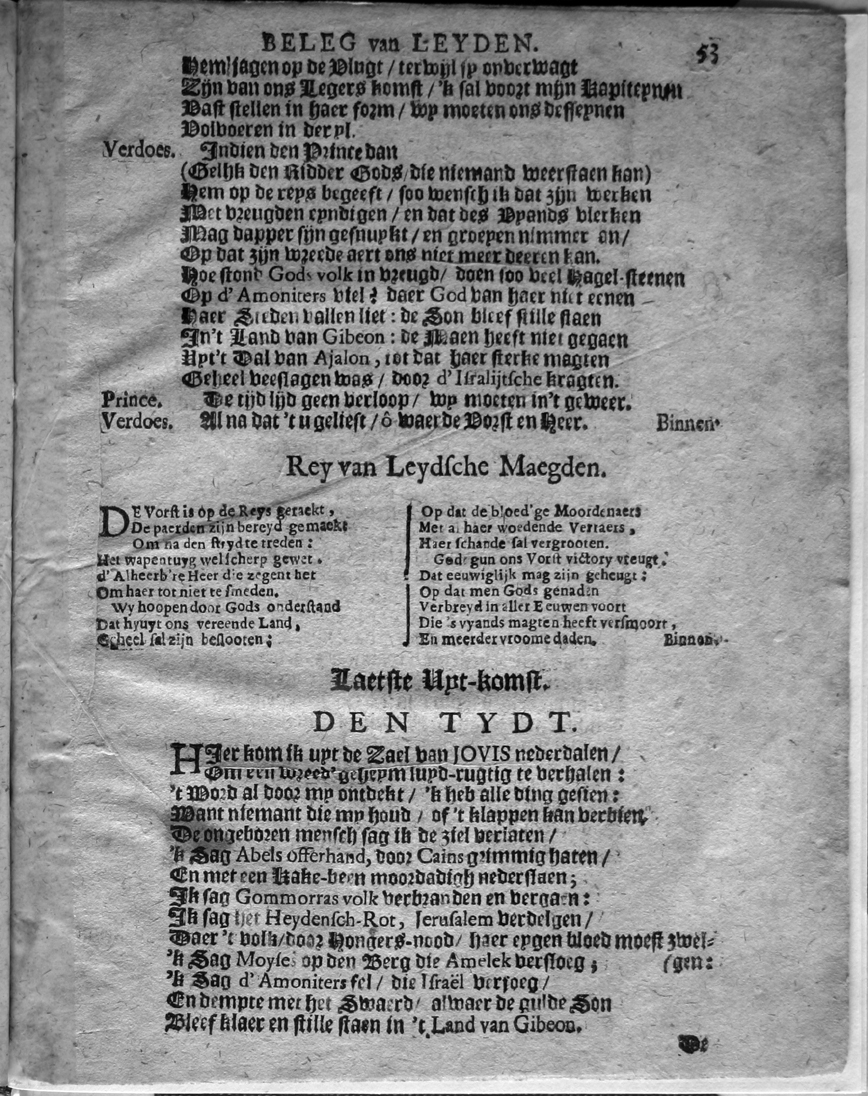 BELEG van LEYDEN. 53
Hem! jagen op de Vlugt / terwijl sy onverwagt
Zijn van ons Legers komst / 'k sal voort mijn Kapiteynen
Vast stellen in haer form / wy moeten ons desseynen
Volvoeren in deryl.
Verdoes. Indien den Prince dan
(Gelijk den Ridder Gods / die niemand weerstaen kan)
Hem op de reys begeeft / soo wensch ik dat zijn werken
Met vreugden eyndigen / en dat des Vyands vlerken
Mag dapper sijn gesnuykt / en groeyen nimmer an /
Op dat zijn wreede aert ons niet meer deeren kan.
Hoe stond Gods volk in vreugd / doen soo veel Hagel-steenen
Op d'Amoniters viel? daer God van haer niet eenen
Haer Steden vallen liet : de Son bleef stille staen
In't Land van Gibeon : de Maen heeft niet gegaen
Uyt't Dal van Ajalon, tot dat haer sterke magten
Geheel veeslagen was / door d'Isralijtsche kragten.
Prince. De tijd lijd geen verloop / wy moeten in't geweer.
Verdoes. Al na dat 't u gelieft / ô waerde Vorst en Heer. Binnen.
Rey van Leydsche Maegden.
DE Vorst is op de Reys geraekt,
De paerden zijn bereyd gemaekt
Om na den strydt te treden :
Het wapentuyg wel scherp gewet,
d'Alheerb're Heer die zegent het
Om haer tot niet te smeden.
Wy hoopen door Gods onderstand
Dat hyuyt ons vereende Land,
Geheel sal zijn beslooten;
Op dat de bloed'ge Moordenaers
Met al haer woedende Verraers,
Haer schande sal vergrooten.
Gode gun ons Vorst victory vreugt,
Dat eeuwiglijk mag zijn geheugt :
Op dat men Gods genaden
Verbreyd in aller Eeuwen voort
Die 's vyands magten heeft versmoort,
En meerder vroome daden. Binnen.
Laetste Uyt-komst.
DEN TYDT.
HIer kom ik uyt de Zael van JOVIS nederdalen /
Om een wreed' geheym luyd-rugtig te verhalen :
't Word al door my ontdekt / 'k heb alle ding gesien :
Want niemant die my houd / of 't klappen kan verbien.
De ongeboren mensch sag ik de ziel verlaten /
'k Sag Abels offerhand, door Cains grimmig haten /
En met een Kake-been moordadigh nederslaen;
Ik sag Gommorras volk verbranden en vergaen :
Ik sag het Heydensch-Rot, Jerusalem verdelgen /
Daer 't volk / door Hongers-nood / haer eygen bloed moest zwel-
'k Sag Moyses op den Berg die Amelek versloeg; (gen:
'k Sag d'Amoniters fel / die Israël verjoeg /
En dempte met het Swaerd / alwaer de gulde Son
Bleef klaer en stille staen in 't Land van Gibeon.
De